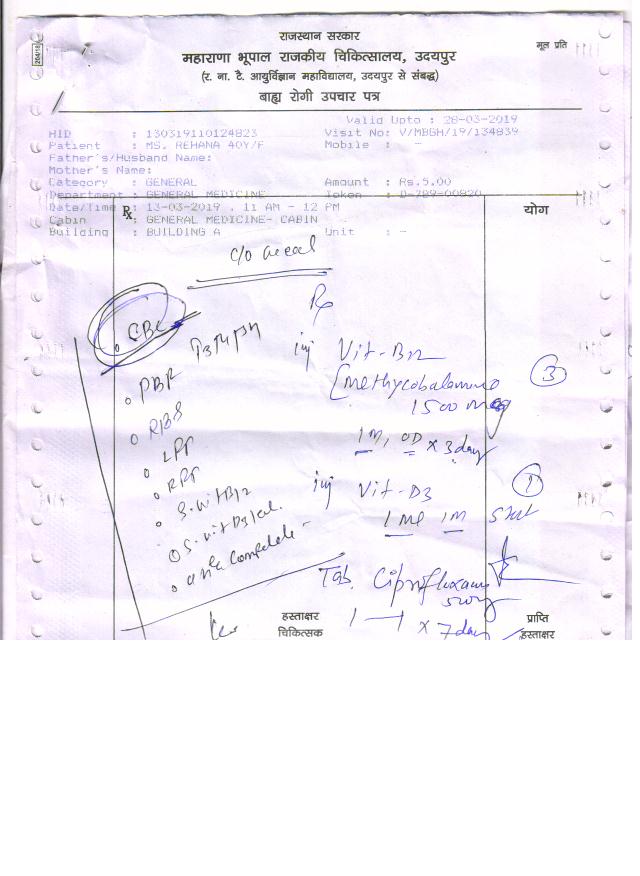 204/18
राजस्थान सरकार
मूल प्रति
महाराणा भूपाल राजकीय चिकित्सालय, उदयपुर
(र. ना. टै. आयुर्विज्ञान महाविद्यालय, उदयपुर से संबद्ध)
बाह्य रोगी उपचार पत्र
Valid Upto : 28-03-2019
HID : 130319110124823 Visit No: V/MBGH/19/134839
Patient : MS. REHANA 40Y/F Mobile : -
Father's/Husband Name:
Mother's Name:
Category : GENERAL Amount : Rs.5.00
Department : GENERAL MEDICINE Token : D-789-00820
Date/Time : 13-03-2019 , 11 AM - 12 PM
Rx योग
Cabin : GENERAL MEDICINE- CABIN
Building : BUILDING A Unit : -
c/o
Rx
CBC
inj Vit-B12
PBF
[Methycobalamine 3
1500 mcg
RBS
LFT
1M, OD x 3day
RFT
inj Vit-D3 1
S. Vit B12
1 ml IM Stat
S. Vit D3/cal.
Urine Complete
Tab. Ciprofloxacin
500mg
1—1 x 7day
हस्ताक्षर
चिकित्सक
प्राप्ति
हस्ताक्षर